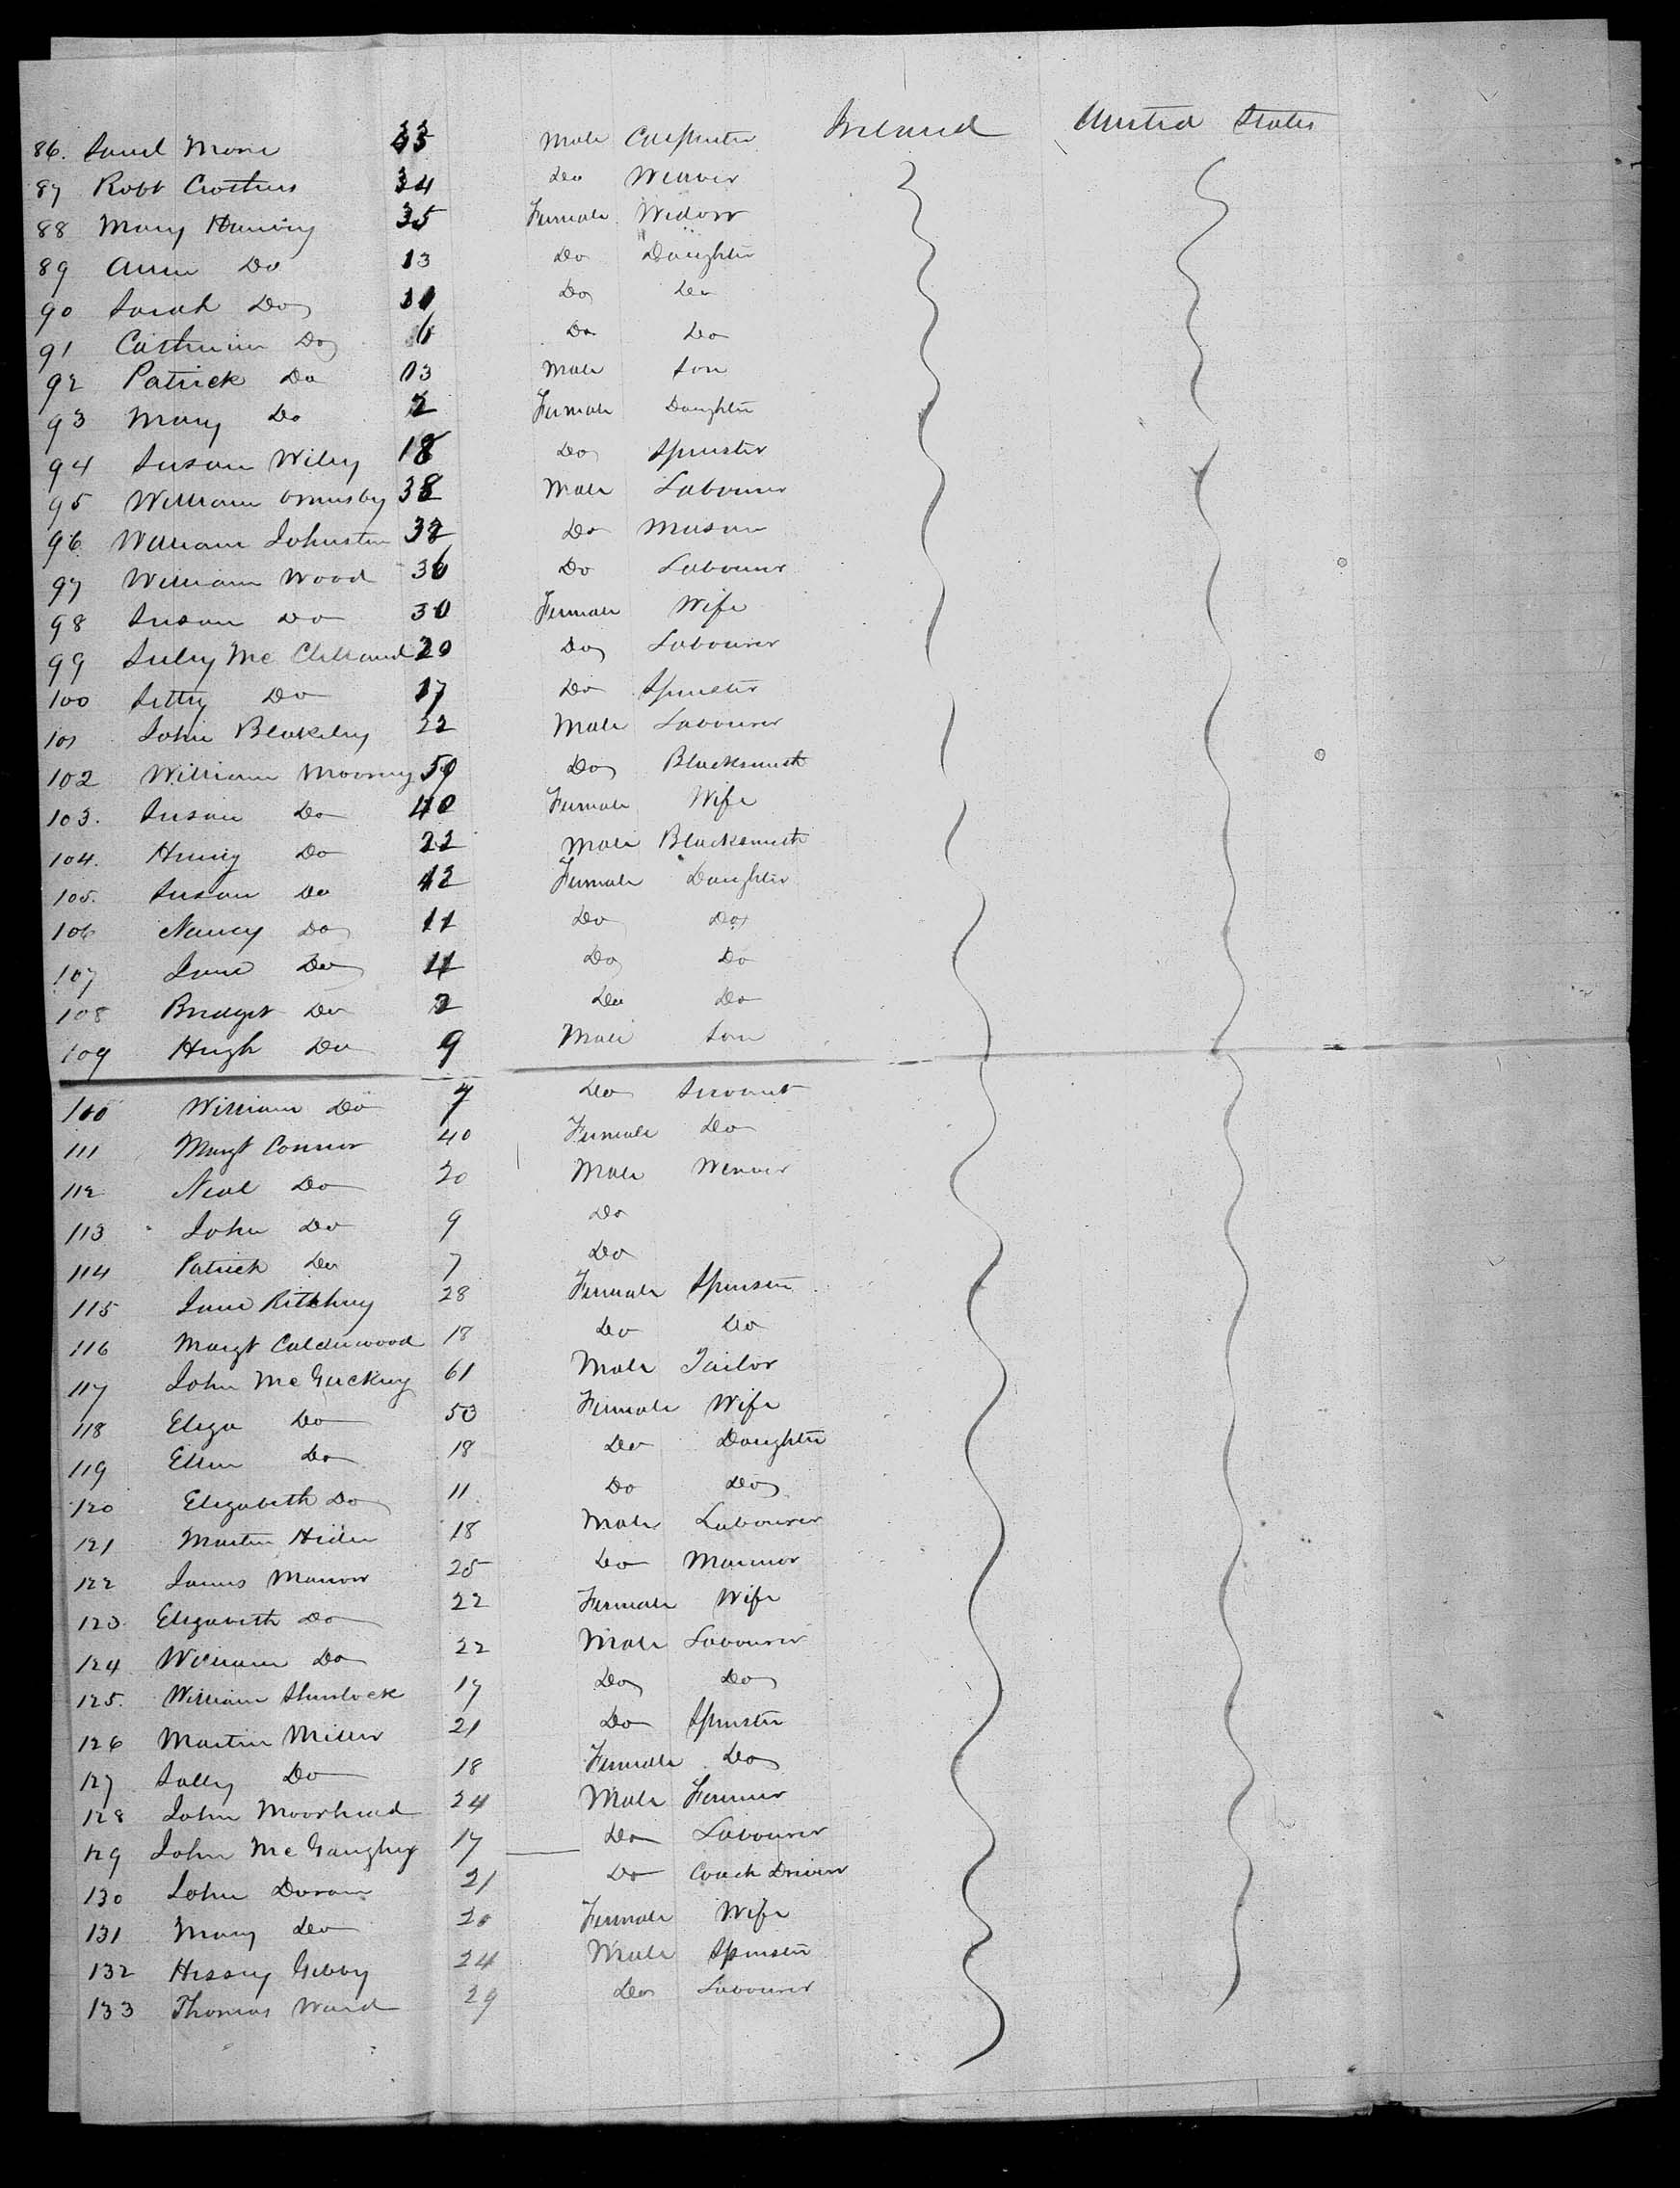 86. Saml Ireland United States
Male Carpenter
87 Robt Crothers 34 Do Weaver
88 Mary 35 Female Widow
89 Ann Do 13 Do Daughter
90 Sarah Do Do Do
91 Catherine Do 6 Do Do
92 Patrick Do 13 Male Son
93 Mary Do 2 Female Daughter
94 Susan Wiley 18 Do Spinster
95 William Ormsby 38 Male Labourer
96 William Johnston Do Mason
97 William Wood 36 Do Labourer
98 Susan Do 30 Female Wife
99 McClelland 20 Do Labourer
100 Do 17 Do Spinster
101 John Blakeley 22 Male Labourer
102 William Mooney Do Blacksmith
103. Susan Do 40 Female Wife
104. Do 22 Male Blacksmith
105. Susan Do Female Daughter
106 Nancy Do 11 Do Do
107 Jane Do Do Do
108 Bridget Do 2 Do Do
109 Hugh Do 9 Male Son
110 William Do 7 Do Servant
111 Margt Connor 40 Female Do
112 Neal Do 20 Male Weaver
113 John Do 9 Do
114 Patrick Do 7 Do
115 Jane 28 Female Spinster
116 Margt Calderwood 18 Do Do
117 John McGuckey 61 Male Tailor
118 Eliza Do 50 Female Wife
119 Ellen Do 18 Do Daughter
120 Elizabeth Do 11 Do Do
121 Martin 18 Male Labourer
122 James 25 Do
123 Elizabeth Do 22 Female Wife
124 William Do 22 Male Labourer
125. William 17 Do Do
126 Martin Miller 21 Do Spinster
127 Sally Do 18 Female Do
128 John Moorhead 24 Male Farmer
129 John McGaughey 17 Do Labourer
130 John Doran 21 Do Coach Driver
131 Mary Do 20 Female Wife
132 Gibby 24 Male Spinster
133 Thomas Ward 29 Do Labourer